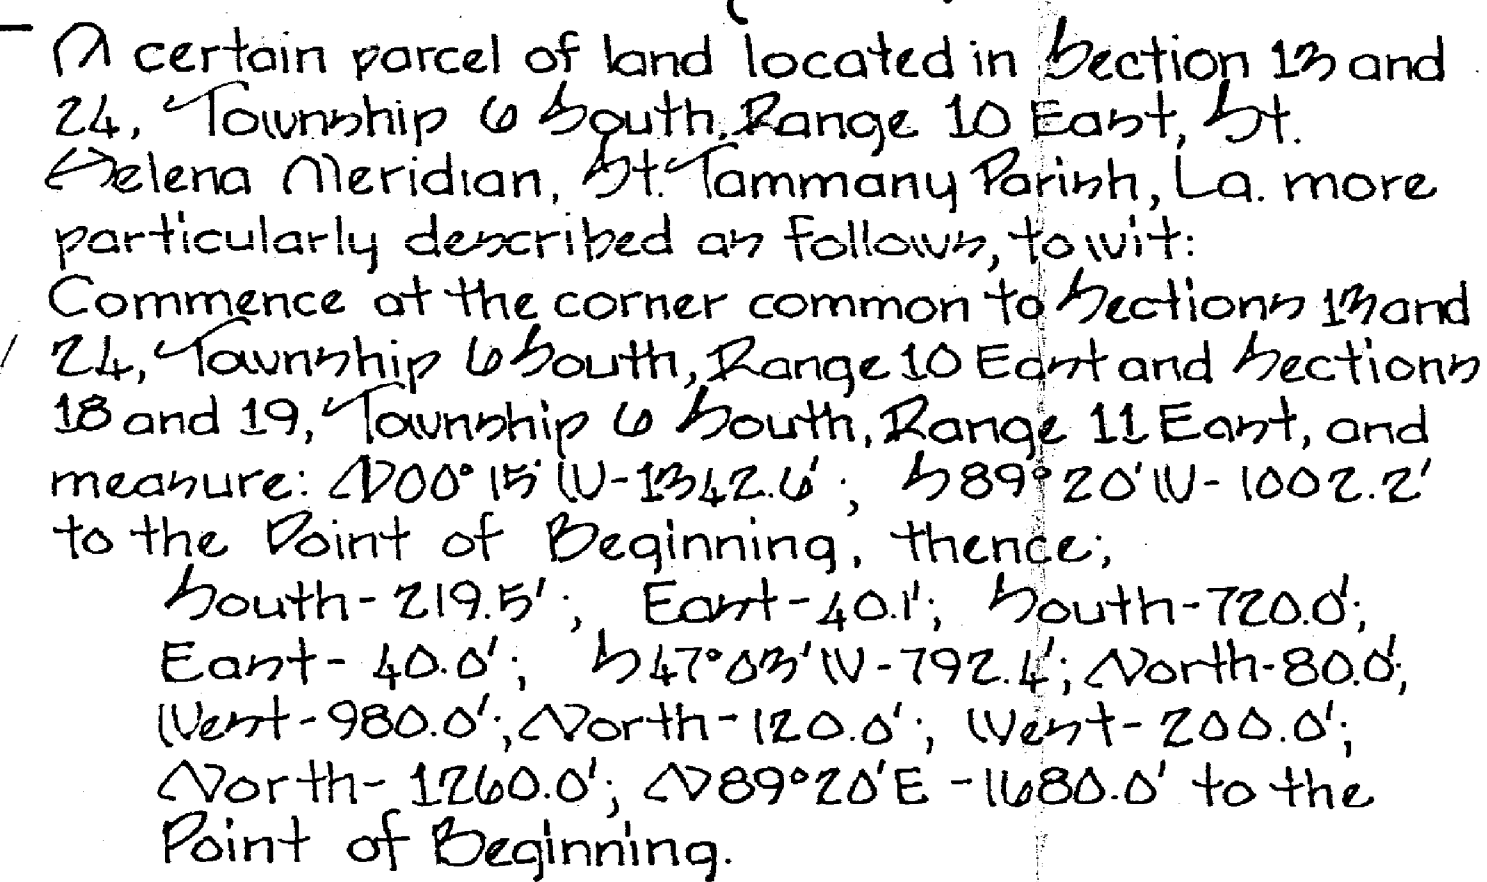 A certain parcel of land located in Section 13 and
24, Township 6 South, Range 10 East, St.
Helena Meridian, St. Tammany Parish, La. more
particularly described as follows, to wit:
Commence at the corner common to Sections 13 and
24, Township 6 South, Range 10 East and Sections
18 and 19, Township 6 South, Range 11 East, and
measure: N00° 15' W-1342.6'; S89° 20' W- 1002.2'
to the Point of Beginning, thence;
South- 219.5'; East-40.1'; South-720.0';
East- 40.0'; S47°03'W-792.4'; North-80.0';
West-980.0'; North-120.0'; West-200.0';
North- 1260.0'; N89°20'E -1680.0' to the
Point of Beginning.